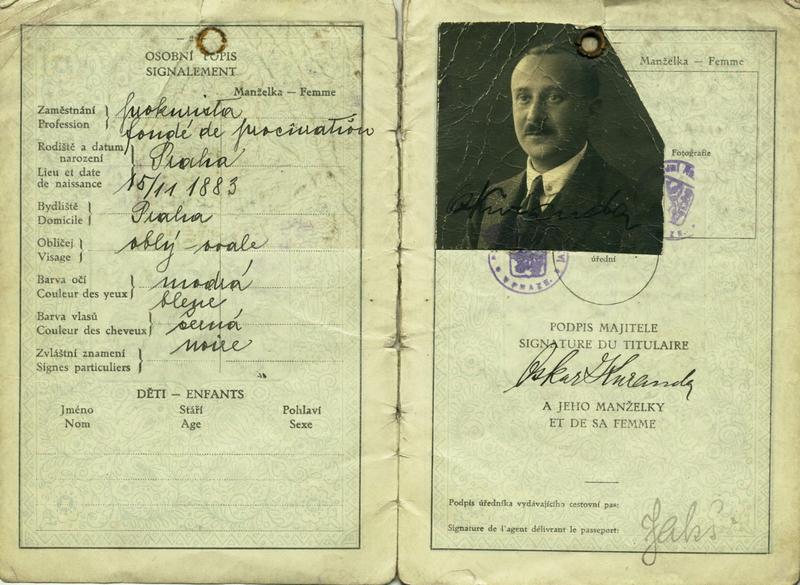 OSOBNÍ POPIS
SIGNALEMENT
Manželka — Femme
Zaměstnání
Profession
prokurista
fondé de procuration
Rodiště a datum
narození
Lieu et date
de naissance
Praha
15/11 1883
Bydliště
Domicile
Praha
Obličej
Visage
oblý - ovale
Barva očí
Couleur des yeux
modrá
bleue
Barva vlasů
Couleur des cheveux
černá
noire
Zvláštní znamení
Signes particuliers
DĚTI — ENFANTS
Jméno Stáří Pohlaví
Nom Age Sexe
Manželka — Femme
Fotografie
OKuranda
úřední
PODPIS MAJITELE
SIGNATURE DU TITULAIRE
Oskar Kuranda
A JEHO MANŽELKY
ET DE SA FEMME
Podpis úředníka vydávajícího cestovní pas:
Signature de l'agent délivrant le passeport: